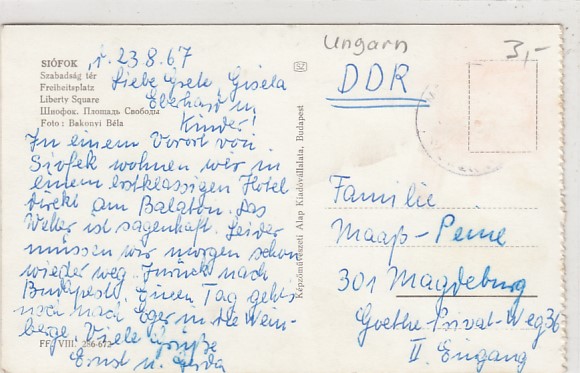 Ungarn
3,-
SIÓFOK
Szabadság tér
Freiheitsplatz
Liberty Square
Шиофок. Площадь Свободы
Foto: Bakonyi Béla
23.8.67
Liebe Gisela
Eberhard u.
Kinder!
In einem Vorort von
Siofok wohnen wir in
einem erstklassigen Hotel
direkt am Balaton. Das
Wetter ist sagenhaft. Leider
müssen wir morgen schon
wieder weg. Zurück nach
Budapest. Einen Tag geht's
noch nach Eger in die Wein-
berge. Viele Grüße
Ernst u. Gerda
FF. VIII. 286-672
Képzőművészeti Alap Kiadóvállalata, Budapest
DDR
Familie
Maaß-Peine
301 Magdeburg
Goethe-Privat-Weg 36
II. Eingang